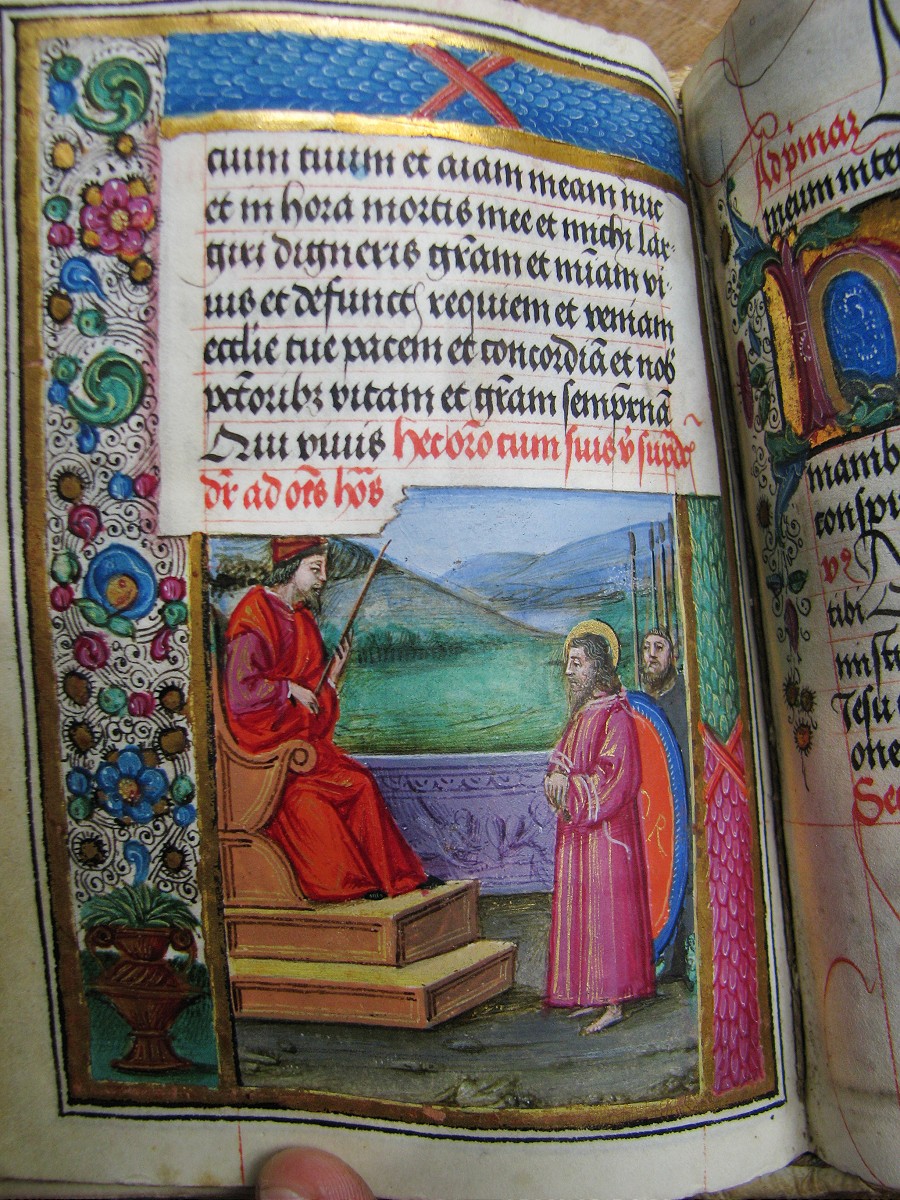 cium tuum et aīam meam nūc
et in hora mortis mee et michi lar-
giri digneris gr̄am et m̄iam vi-
uis et defunctꝭ requiem et veniam
ecclīe tue pacem et concordiā et nob̄
pctōribꝫ vitam et gr̄am semp̄rnā
Qui viuis hec or̄o cum suis v̄ sup̄dc̄ꝭ
dr̄ ad oēs hōs
Ad primaꝫ
meum inte
manib
conspi
v̄ꝰ
tibi
Jesu